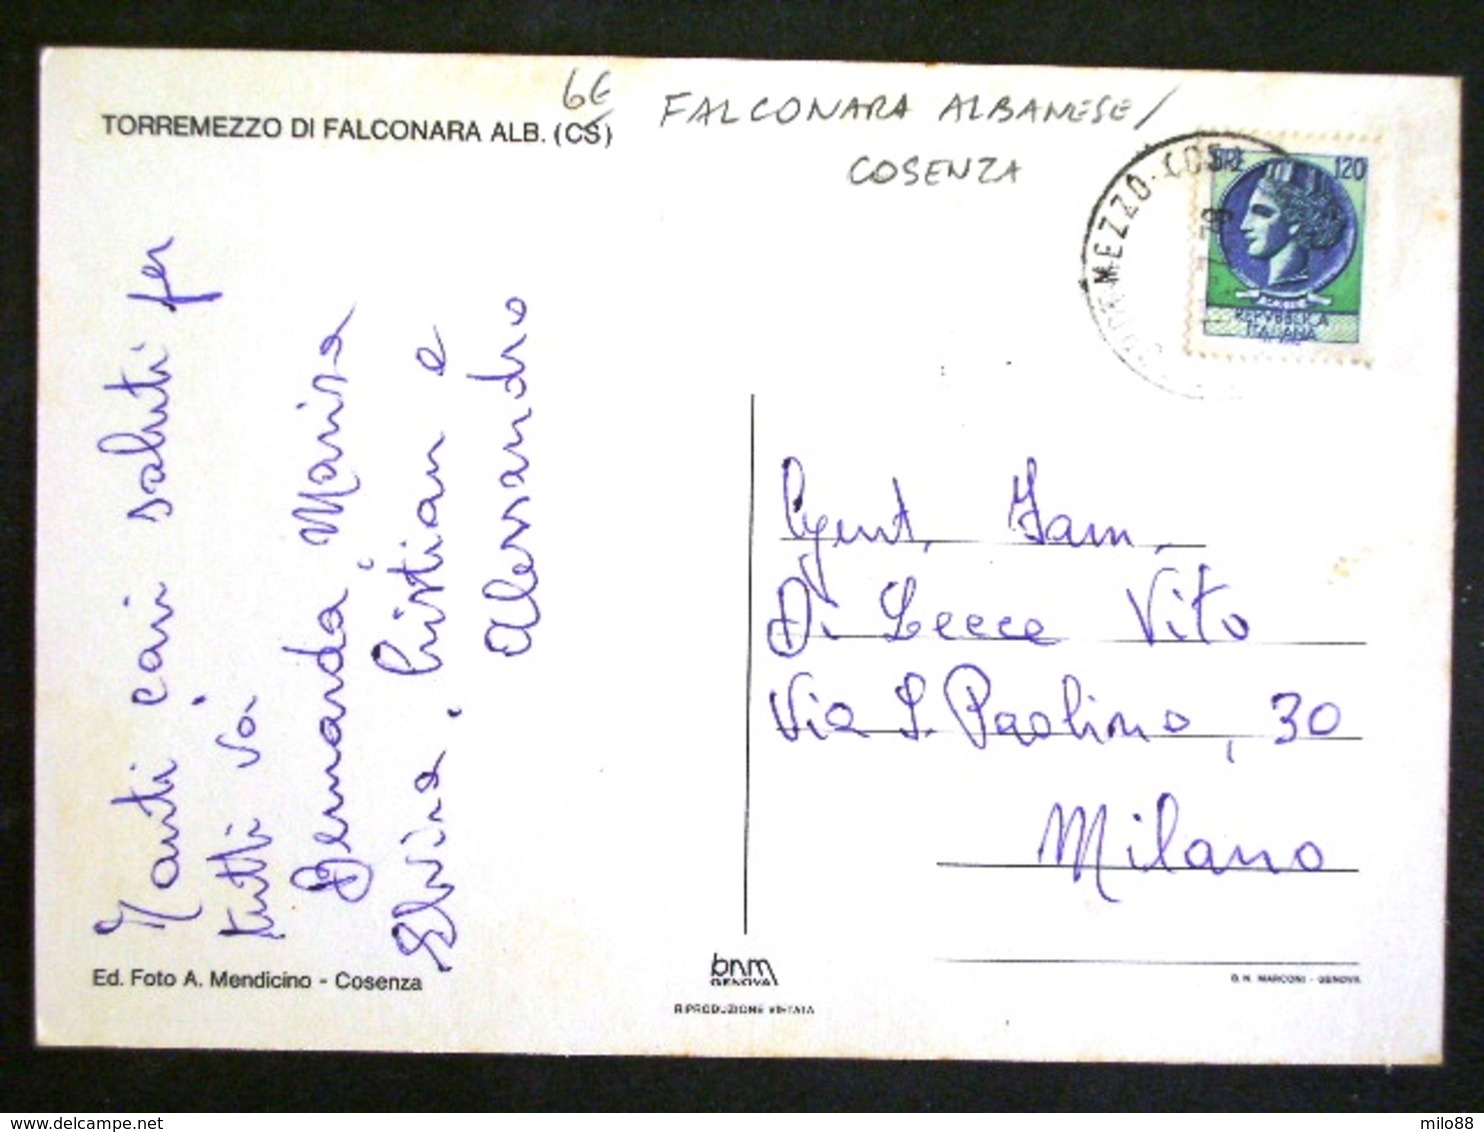 6€
TORREMEZZO DI FALCONARA ALB. (CS)
FALCONARA ALBANESE/
COSENZA
MEZZO - COS
LIRE 120
REPVBBLICA
ITALIANA
Tanti cari saluti per
tutti voi
Bernarda Marisa
Elvira, Cristian e
Alessandro
Gent. Fam.
Di Lecce Vito
Via S. Paolino, 30
Milano
Ed. Foto A. Mendicino - Cosenza
bnm
GENOVA
RIPRODUZIONE VIETATA
B.N. MARCONI - GENOVA
delcampe.net
milo88